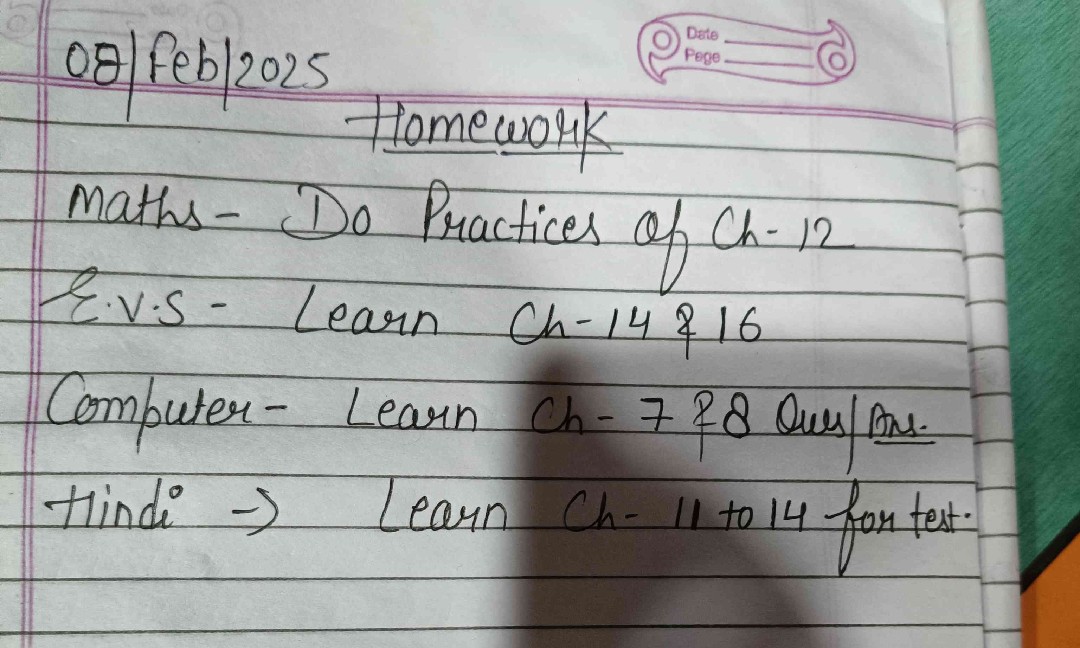 08/Feb/2025
Date
Page
Homework
Maths - Do Practices of Ch - 12
E.V.S - Learn Ch - 14 & 16
Computer - Learn Ch - 7 & 8 Ques/Ans.
Hindi → Learn Ch - 11 to 14 for test.